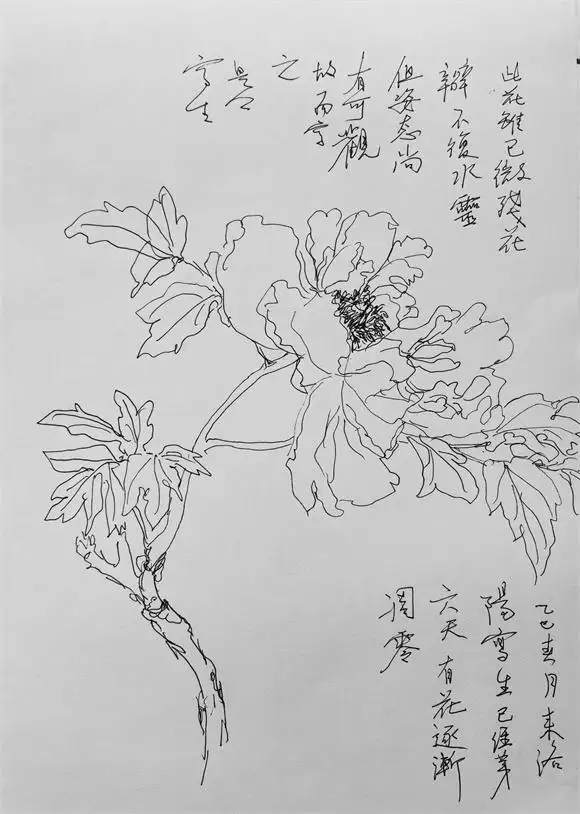 此花雖已微残花
瓣不復水靈
但姿态尚
有可觀
故而写
之
是
写生
乙巳春月来洛
陽寫生已经第
六天有花逐漸
凋零